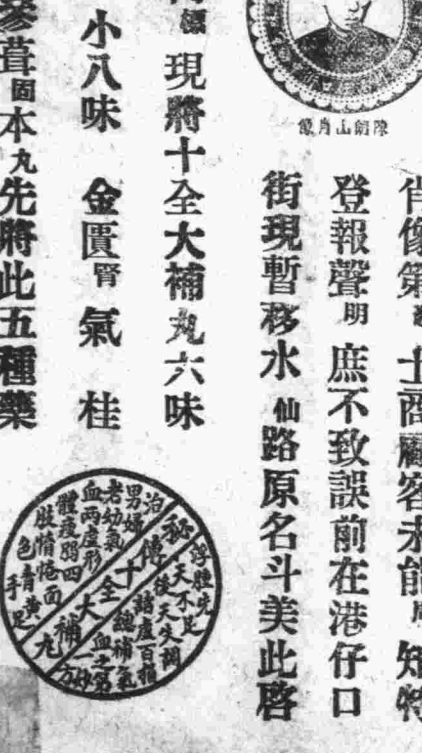 陳劍山肖像
肖像第 士商顧客未能周知特
登報聲明庶不致誤前在港仔口
街現暫移水仙路原名斗美此啓
現將十全大補丸六味
小八味 金匱腎氣 桂
參茸固本丸先將此五種藥
秘傳十全大補丸
治
男婦
老幼氣
血兩虛形
體瘦弱四
肢惰倦面
色青黃
手足
浮腫先
天不足
後天失調
諸虛百損
總補氣
血之第
妙方